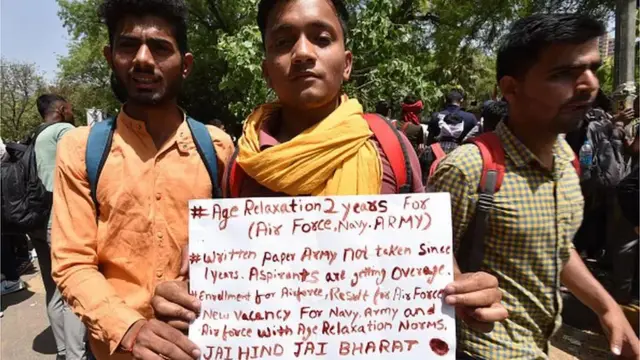 # Age Relaxation 2 years For
(Air Force, Navy, ARMY)
# Written paper Army Not taken Since
1 years. Aspirants are getting overage.
# Enrollment for Airforce, Result for Air Force
New vacancy For Navy, Army and
Airforce with Age Relaxation Norms.
JAI HIND JAI BHARAT